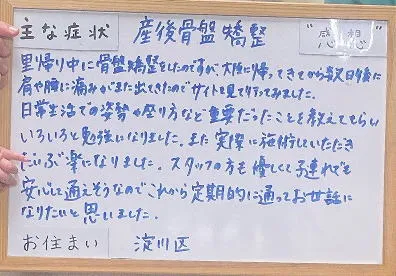 主な症状 産後骨盤矯整 "感想"
里帰り中に骨盤矯整をしたのですが、大阪に帰ってきてから数日後に
肩や腕に痛みがまた出てきたのでサイトを見て行ってみました。
日常生活での姿勢や座り方など重要だったことを教えてもらい
いろいろと勉強になりました。また実際に施術していただき
だいぶ楽になりました。スタッフの方も優しくて子連れでも
安心して通えそうなのでこれから定期的に通ってお世話に
なりたいと思いました。
お住まい 淀川区